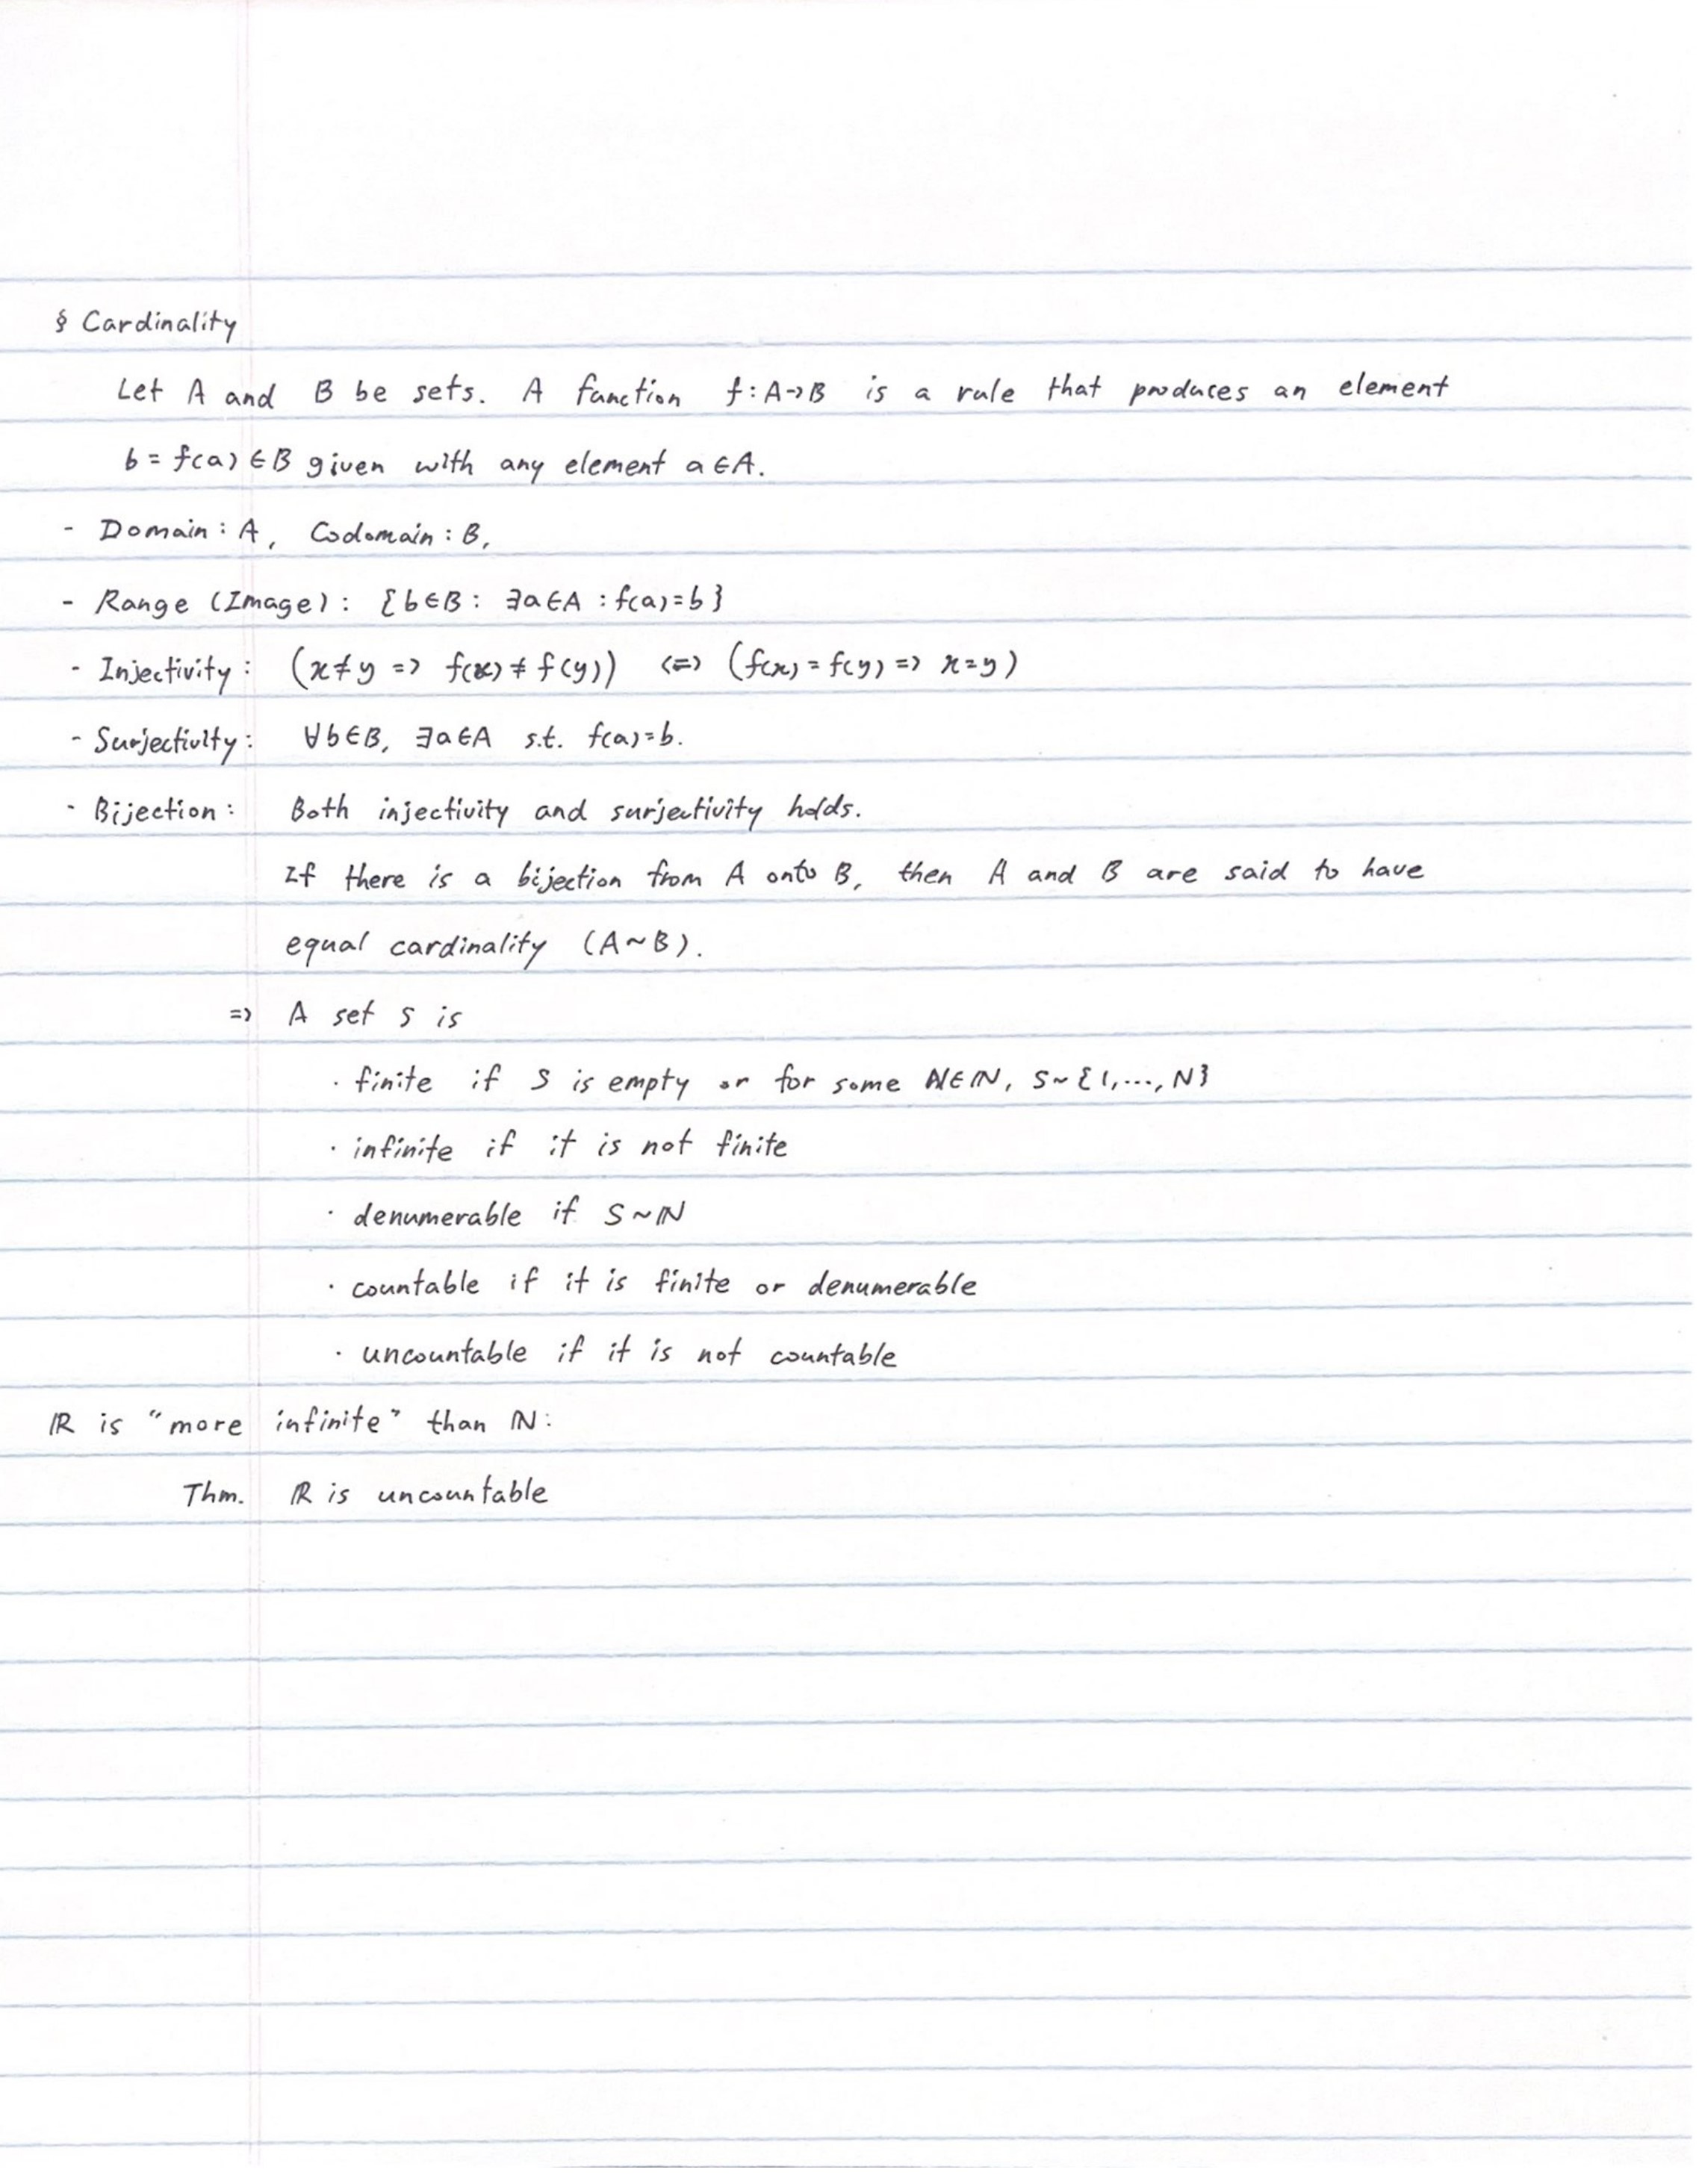 § Cardinality
Let A and B be sets. A function f:A→B is a rule that produces an element
b = f(a) ∈ B given with any element a ∈ A.
- Domain : A, Codomain : B,
- Range (Image) : {b∈B : ∃a∈A : f(a)=b}
- Injectivity : (x≠y => f(x)≠f(y)) <=> (f(x)=f(y) => x=y)
- Surjectivity : ∀b∈B, ∃a∈A s.t. f(a)=b.
- Bijection : Both injectivity and surjectivity holds.
If there is a bijection from A onto B, then A and B are said to have
equal cardinality (A~B).
=> A set S is
· finite if S is empty or for some N∈ℕ, S~{1,..., N}
· infinite if it is not finite
· denumerable if S~ℕ
· countable if it is finite or denumerable
· uncountable if it is not countable
ℝ is "more infinite" than ℕ:
Thm. ℝ is uncountable